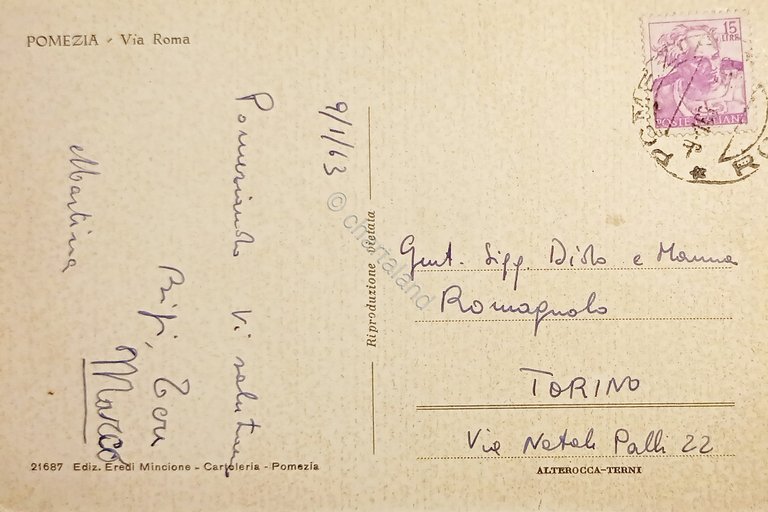 POMEZIA - Via Roma
15
LIRE
POSTE ITALIANE
9/1/63
Pomeziando Vi salutano
Bifi, Teru
Marco
Martina
© chartaland
Riproduzione vietata
Gent. Sigg. Disto e Manna
Romagnolo
TORINO
Via Natale Palli 22
21687 Ediz. Eredi Mincione - Cartoleria - Pomezia
ALTEROCCA-TERNI